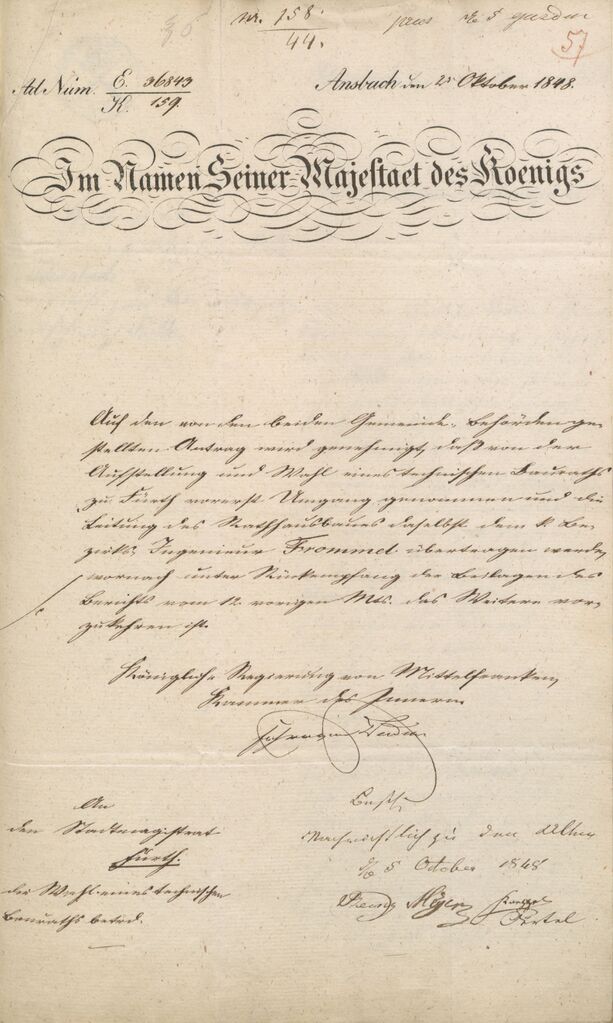 Nr. 158.
44.
57
Ad Núm. E. 36843
K. 159.
Ansbach den 2ⁿ Oktober 1848.
Im Namen Seiner Majestaet des Koenigs
Auf den von den beiden Gemeinde-Behörden ge-
stellten Antrag wird genehmigt, daß von der
Aufstellung und Wahl eines technischen Bauraths
zu Fürth vorerst Umgang genommen und die
Leitung des Rathhausbaues daselbst dem k. Be-
zirks-Ingenieur Frommel übertragen werde,
wornach unter Rückempfang der Beilagen des
Berichts vom 12. vorigen Mts. das Weitere vor-
zukehren ist.
Königliche Regierung von Mittelfranken,
Kammer des Innern.
An
den Stadtmagistrat
Fürth.
die Wahl eines technischen
Bauraths betrd.
Beschl.
Nachrichtlich zu den Akten
5 October 1848